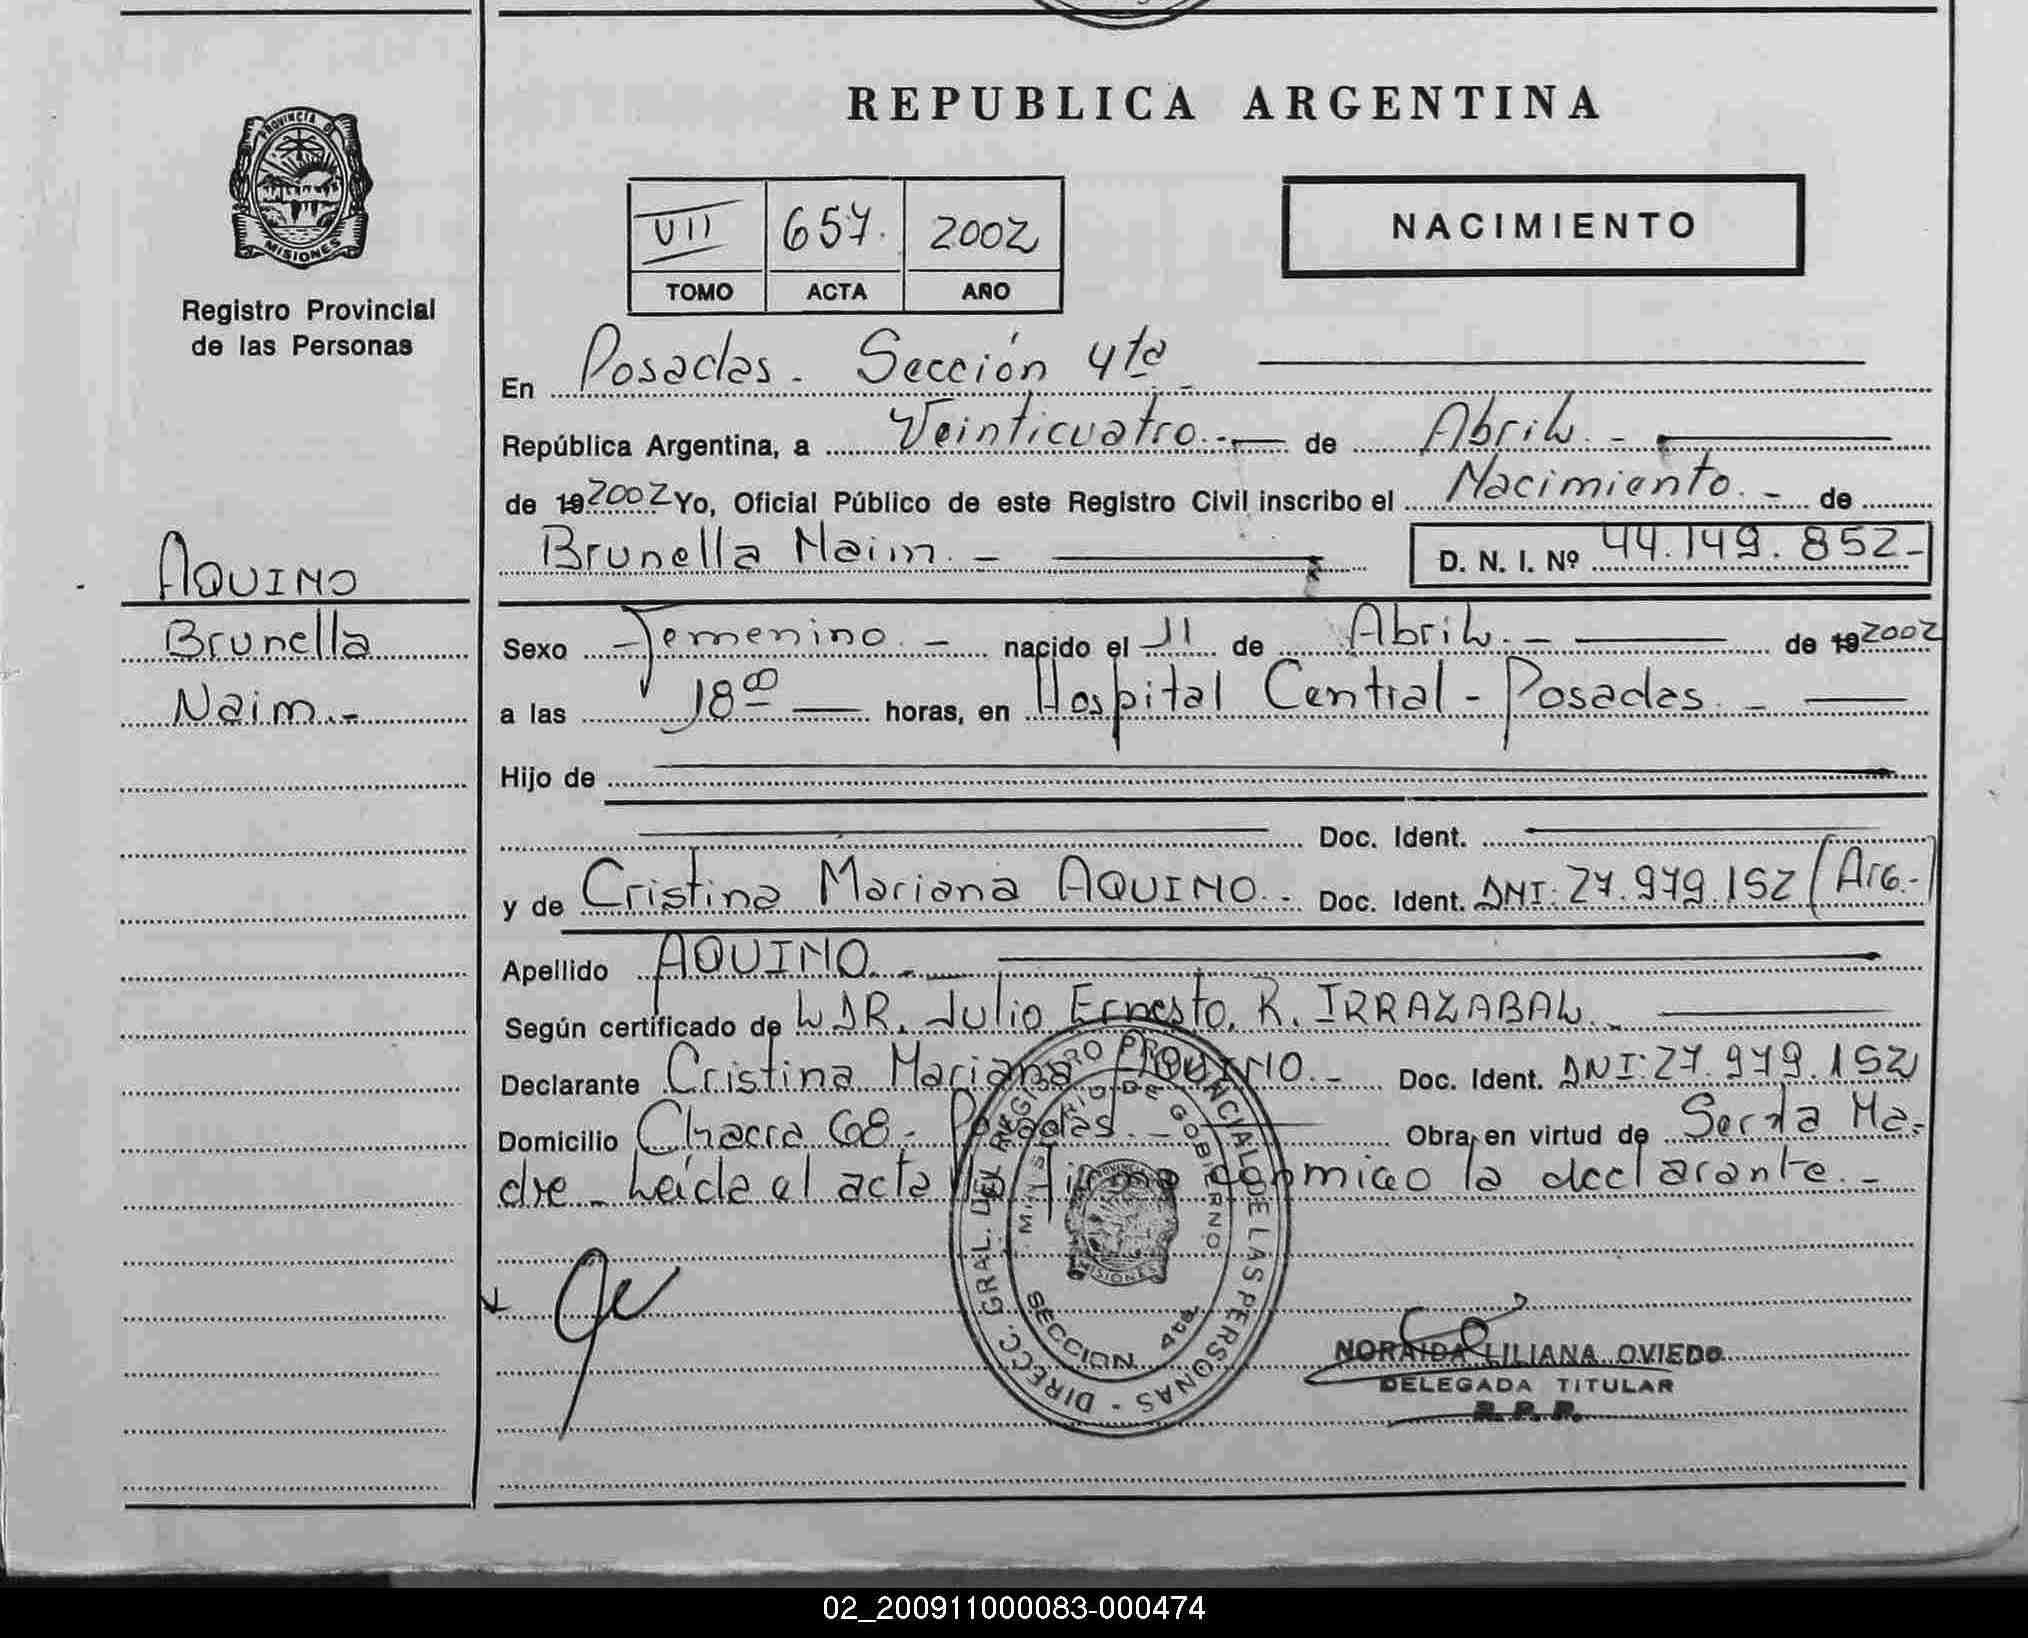 REPUBLICA ARGENTINA
PROVINCIA DE
MISIONES
Registro Provincial
de las Personas
VII 657. 2002
TOMO ACTA AÑO
NACIMIENTO
En Posadas. Sección 4ta
República Argentina, a Veinticuatro.- de Abril.-
de 19 2002 Yo, Oficial Público de este Registro Civil inscribo el Nacimiento.- de
Brunella Naim.- D. N. I. Nº 44.149.852-
AQUINO
Brunella
Naim.-
Sexo Femenino.- nacido el 11 de Abril.- de 19 2002
a las 18 00 horas, en Hospital Central - Posadas.-
Hijo de
Doc. Ident.
y de Cristina Mariana AQUINO.- Doc. Ident. DNI: 27.979.152 (Arg.-)
Apellido AQUINO.-
Según certificado de L DR. Julio Ernesto. R. IRRAZABAL.
Declarante Cristina Mariana AQUINO.- Doc. Ident. DNI: 27.979.152
Domicilio Chacra 68- Posadas.- Obra, en virtud de Ser la Ma-
dre - Leída el acta la firma conmigo la declarante.-
DIRECC. GRAL. DEL REGISTRO PROVINCIAL DE LAS PERSONAS -
MINISTERIO DE GOBIERNO
PROVINCIA
MISIONES
SECCION 4ta.
NORAIDA LILIANA OVIEDO
DELEGADA TITULAR
R. P. P.
02_200911000083-000474